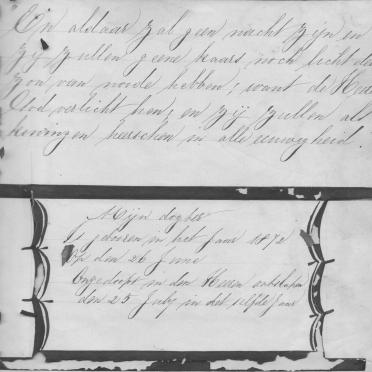 "En aldaar zal geen nacht zijn en
zij zullen geene kaars, noch licht der
zon van noode hebben; want de Heere
God verlicht hen; en zij zullen als
koningen heerschen in alle eeuwigheid."
Mijn dogter
Is gebooren in het Jaar 1872
Op den 26 June
Ongedoopt in den Heere ontslapen
den 25 July in dit selfde Jaar